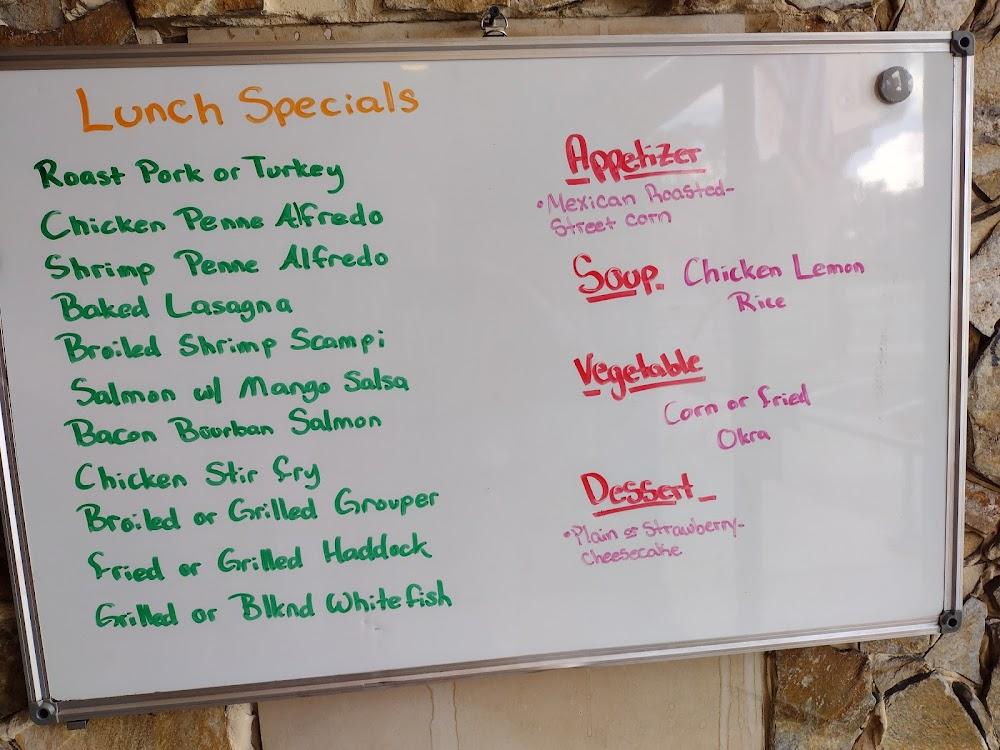 Lunch Specials
Roast Pork or Turkey
Chicken Penne Alfredo
Shrimp Penne Alfredo
Baked Lasagna
Broiled Shrimp Scampi
Salmon w/ Mango Salsa
Bacon Bourban Salmon
Chicken Stir fry
Broiled or Grilled Grouper
fried or Grilled Haddock
Grilled or Blknd Whitefish
Appetizer
•Mexican Roasted-
Street corn
Soup. Chicken Lemon
Rice
Vegetable
Corn or fried
Okra
Dessert
•Plain or Strawberry-
cheesecake